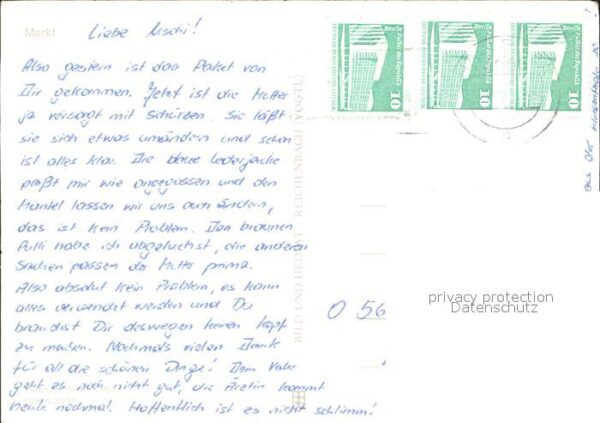 Markt
Liebe Uschi!
Also gestern ist das Paket von
Dir gekommen. Jetzt ist die Mutter
ja versorgt mit Schürzen. Sie läßt
sie sich etwas umändern und schon
ist alles klar. Die blaue Lederjacke
paßt mir wie angegossen und den
Mantel lassen wir uns auch ändern,
das ist kein Problem. Den braunen
Pulli habe ich abgeluchst, die anderen
Sachen passen der Mutter prima.
Also absolut kein Problem, es kann
alles verwendet werden und Du
brauchst Dir deswegen keinen Kopf
zu machen. Nochmals vielen Dank
für all die schönen Dinge! Dem Vater
geht es noch nicht gut, die Ärztin kommt
heute nochmal. Hoffentlich ist es nicht schlimm!
BILD UND HEIMAT REICHENBACH (VOGTL)
10
10
10
aus der
O 56
privacy protection
Datenschutz